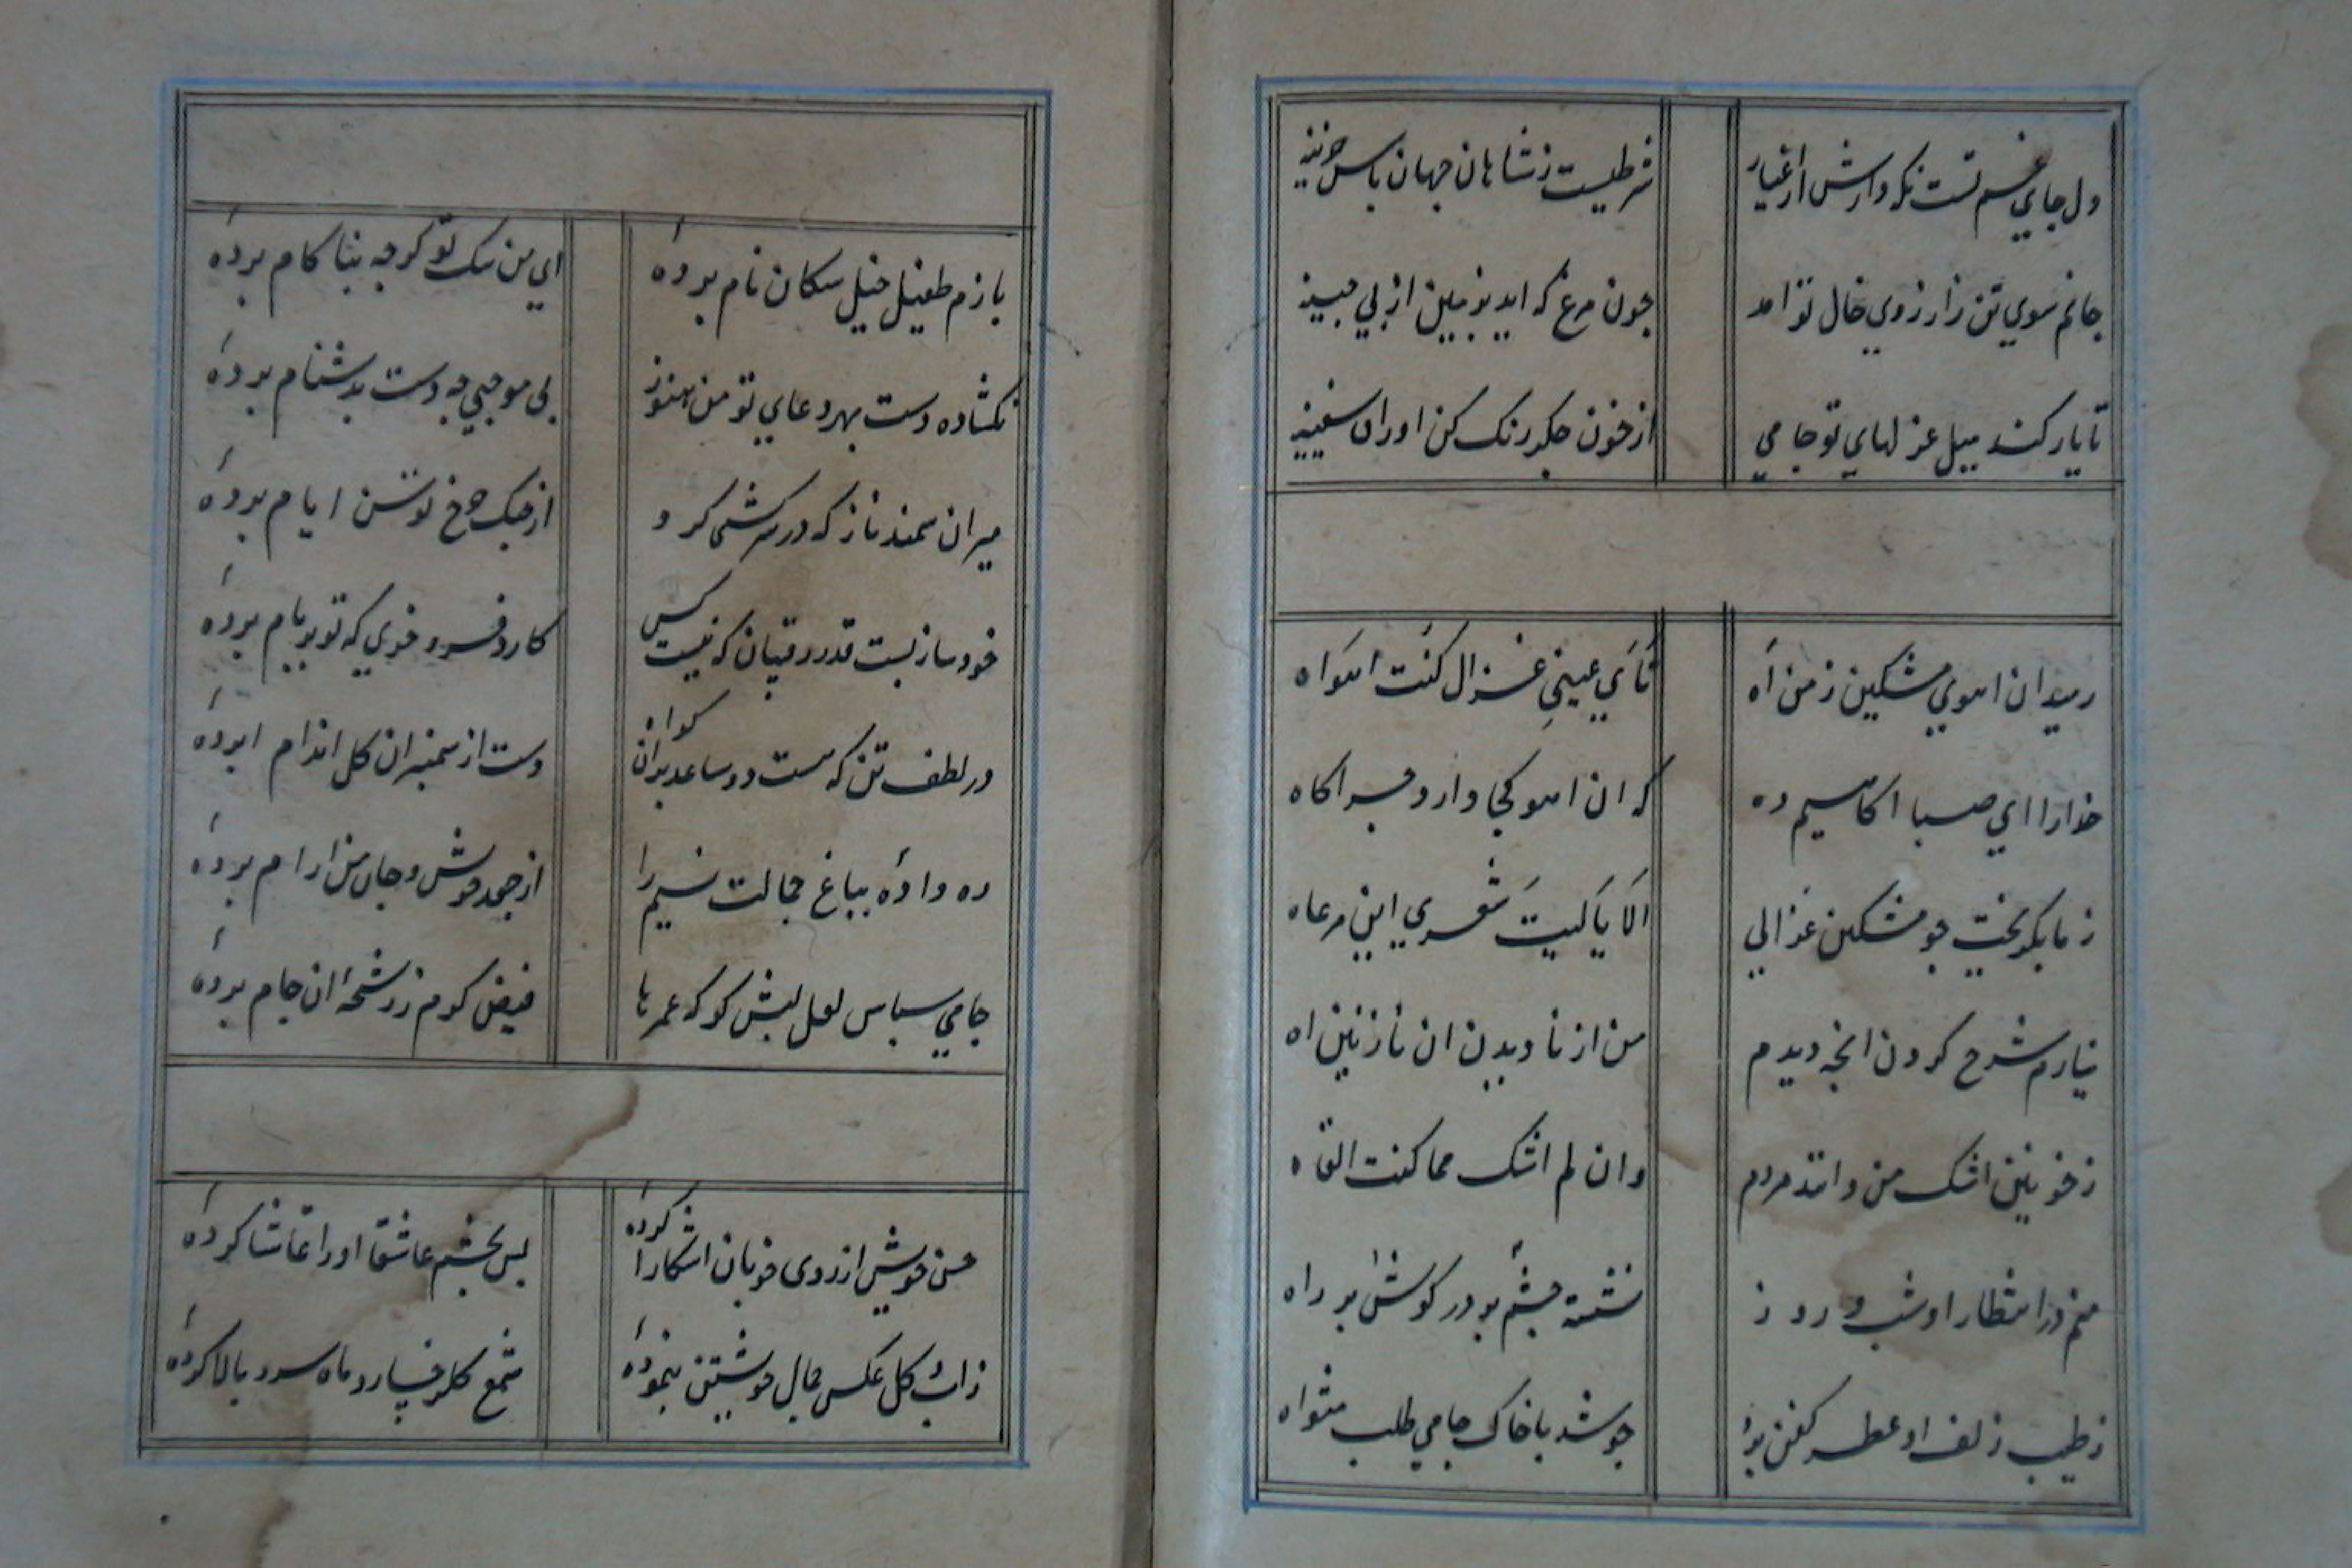 دل جای غم تست نکه دارش از اغیار شرطیست ز شاهان جهان پاس خزینه
جانم سوی تن ز ارزوی خال تو امد چون مرغ که اید بزمین از پی چینه
تا یار کند میل غزلهای تو جامی از خون جکر رنک کن اوراق سفینه
رمید ان اهوی مشکین ز من اه نَأَی عینی غزال کنت اهواه
خدا را ای صبا اکاهیم ده که ان اهو کجا دارد چراکاه
ز ما بکریخت جو مشکین غزالی الَا یَا لیتَ شعری این مرعاه
نیارم شرح کردن انچه دیدم من از نادیدن ان نازنین اه
ز خونین اشک من دانند مردم وان لم اشک مما کنت القاه
منم در انتظار او شب و روز نشسته چشم بر در کوش بر راه
ز طیب زلف او عطر کفن بو چو شد با خاک جامی طلب مثواه
ای من سک تو کرچه بنا کام بردهٔ بازم طفیل خیل سکان نام بردهٔ
نکشاده دست بهر دعای تو من هنوز بی موجبی چه دست بدشنام بردهٔ
میران سمند ناز که در سرکشی کرو از خنک چرخ توسن ایام بردهٔ
خود ساز پست قدر رقیبان که نیست کس کارد فرو خری که تو بر بام بردهٔ
در لطف تن که هست دو ساعد بران کواه دست از سمنبران کل اندام بردهٔ
ره دادهٔ بباغ جمالت نسیم را از جعد خویش و جان من ارام بردهٔ
جامی سپاس لعل لبش کو که عمرها فیض کرم ز رشحهٔ ان جام بردهٔ
حسن خویش از روی خوبان اشکارا کردهٔ پس بچشم عاشقان او را تماشا کردهٔ
ز اب و کل عکس جمال خویشتن بنمودهٔ شمع کلرخسار و ماه سرو بالا کردهٔ